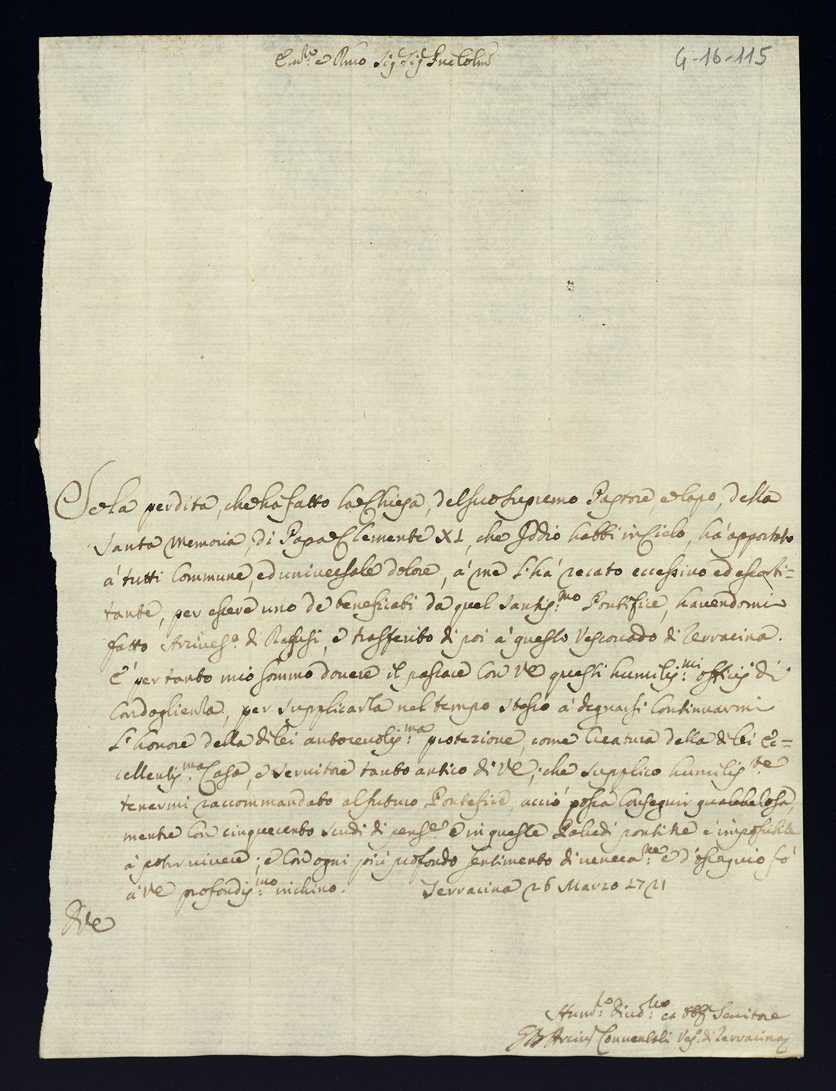 Em.º e Rmo Sig.r Sig.r Prõne Colmo
G-16-115
Se la perdita, che ha fatto la Chiesa, del suo Supremo Pastore, e Capo, della
Santa Memoria, di Papa Clemente XI, che Iddio habbi in Cielo, hà apportato
à tutti commune, ed universale dolore, à me l'hà recato eccessivo ed esorbi=
tante, per essere uno de beneficati da quel Santiss.mo Pontifice, havendomi
fatto Arcives.º di Ragusi, e trasferito di poi à questo Vescovado di Terracina.
E' per tanto mio sommo dovere il passare con VE questi humiliss.mi officij di
Condoglienza, per supplicarla nel tempo stesso à degnarsi Continuarmi
L'honore della di lei autorevoliss.ma protezione, come Creatura della di lei Ec=
cellentiss.ma Casa, e servitore tanto antico di VE, che supplico humiliss.te
tenermi raccommandato al futuro Pontefice, acciò possa Conseguir qualche cosa,
mentre Con cinquecento scudi di pens.e e in queste Paludi pontine è impossibile
à poter vivere; e Con ogni più profondo sentimento di venera.ne e d'ossequio fò
à VE profondiss.mo inchino. Terracina 26 Marzo 1721
Di VE
Hum.º Div.º et Obl. Servitore
GB Arciv. Conventati Vesº. di Terracina